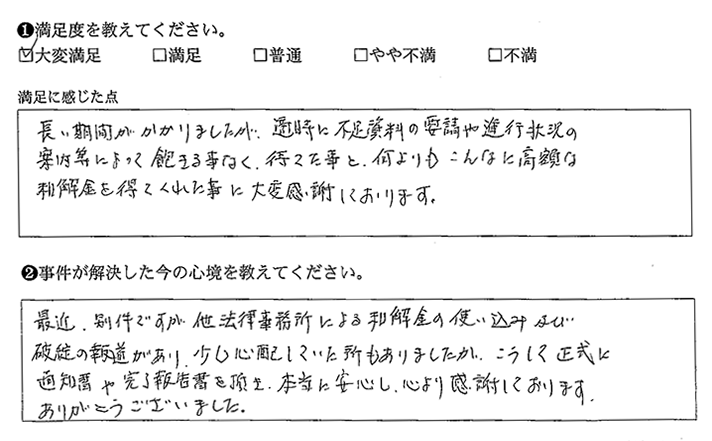 ❶満足度を教えてください。
☑大変満足 □満足 □普通 □やや不満 □不満
満足に感じた点
長い期間がかかりましたが、適時に不足資料の要請や進行状況の
案内等によって飽きる事なく、待てた事と、何よりもこんなに高額な
和解金を得てくれた事に大変感謝しております。
❷事件が解決した今の心境を教えてください。
最近、別件ですが他法律事務所による和解金の使い込み及び
破綻の報道があり、少し心配していた所もありましたが、こうして正式に
通知書や完了報告書を頂き、本当に安心し、心より感謝しております。
ありがとうございました。